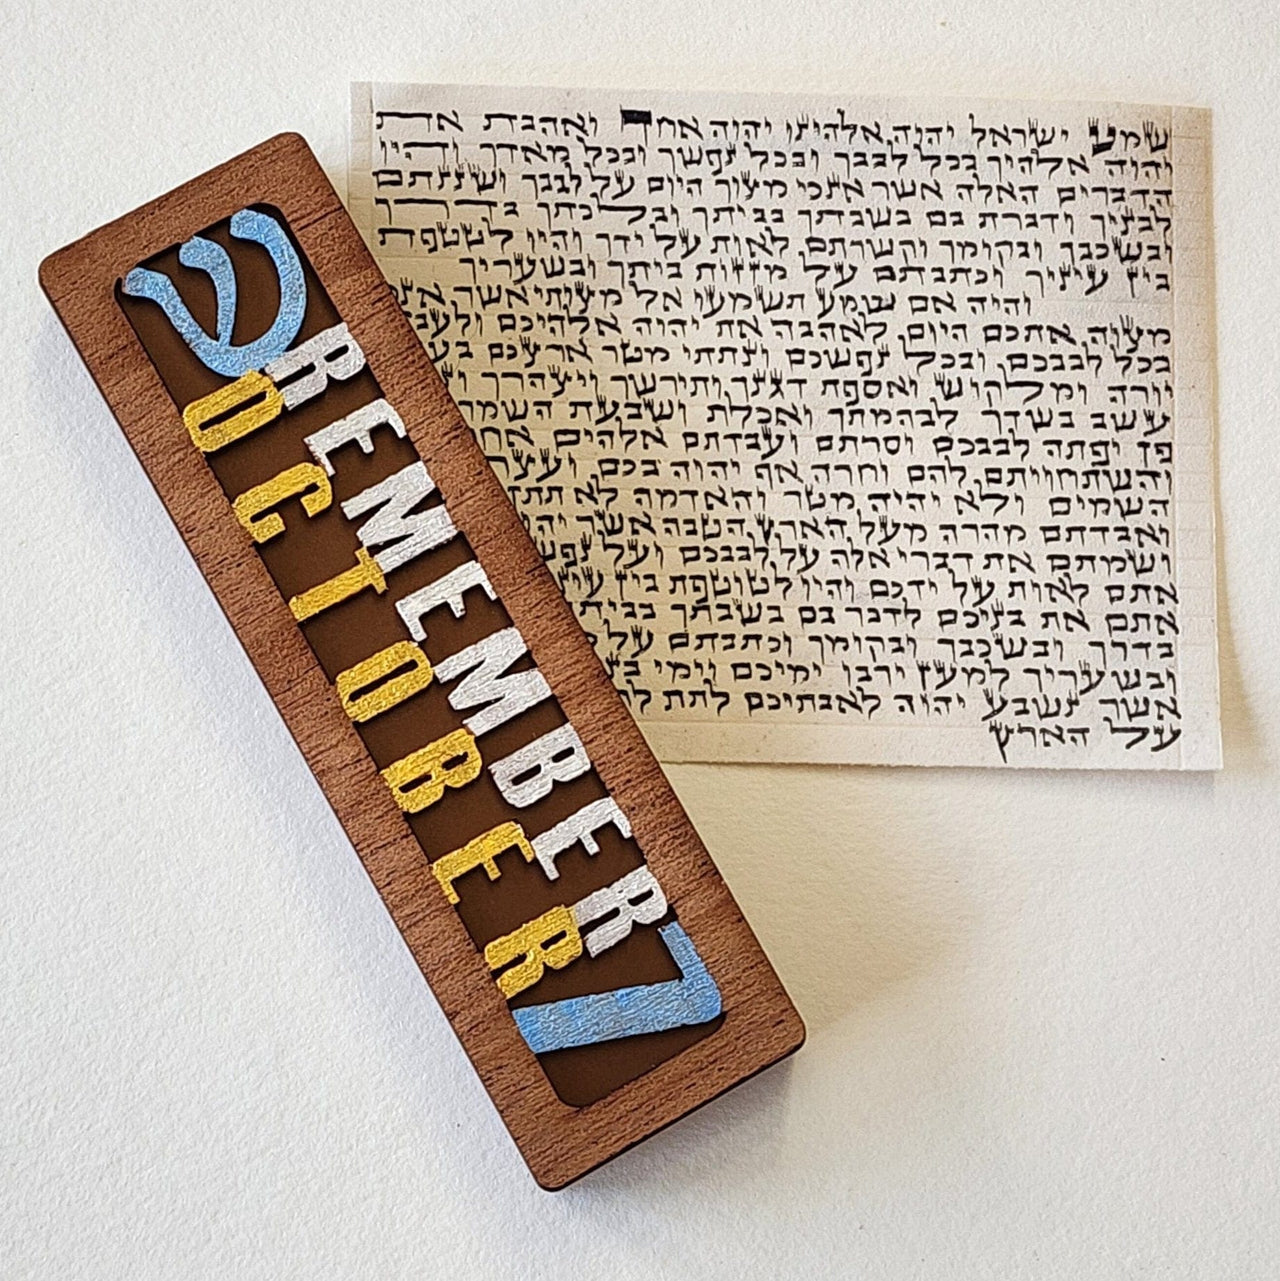 ש
REMEMBER
OCTOBER
7
שמע ישראל יהוה אלהינו יהוה אחד ואהבת את
יהוה אלהיך בכל לבבך ובכל נפשך ובכל מאדך והיו
הדברים האלה אשר אנכי מצוך היום על לבבך ושננתם
לבניך ודברת בם בשבתך בביתך ובלכתך בדרך
ובשכבך ובקומך וקשרתם לאות על ידך והיו לטטפת
בין עיניך וכתבתם על מזזות ביתך ובשעריך
והיה אם שמע תשמעו אל מצותי אשר
מצוה אתכם היום לאהבה את יהוה אלהיכם
בכל לבבכם ובכל נפשכם ונתתי מטר ארצכם
יורה ומלקוש ואספת דגנך ותירשך ויצהרך
עשב בשדך לבהמתך ואכלת ושבעת
פן יפתה לבבכם וסרתם ועבדתם אלהים
והשתחויתם להם וחרה אף יהוה בכם ועצר
השמים ולא יהיה מטר והאדמה לא
ואבדתם מהרה מעל הארץ הטבה אשר
ושמתם את דברי אלה על לבבכם ועל
אתם לאות על ידכם והיו לטוטפת בין
אתם את בניכם לדבר בם בשבתך
בדרך ובשכבך ובקומך וכתבתם על
ובשעריך למען ירבו ימיכם וימי
אשר נשבע יהוה לאבתיכם לתת
על הארץ